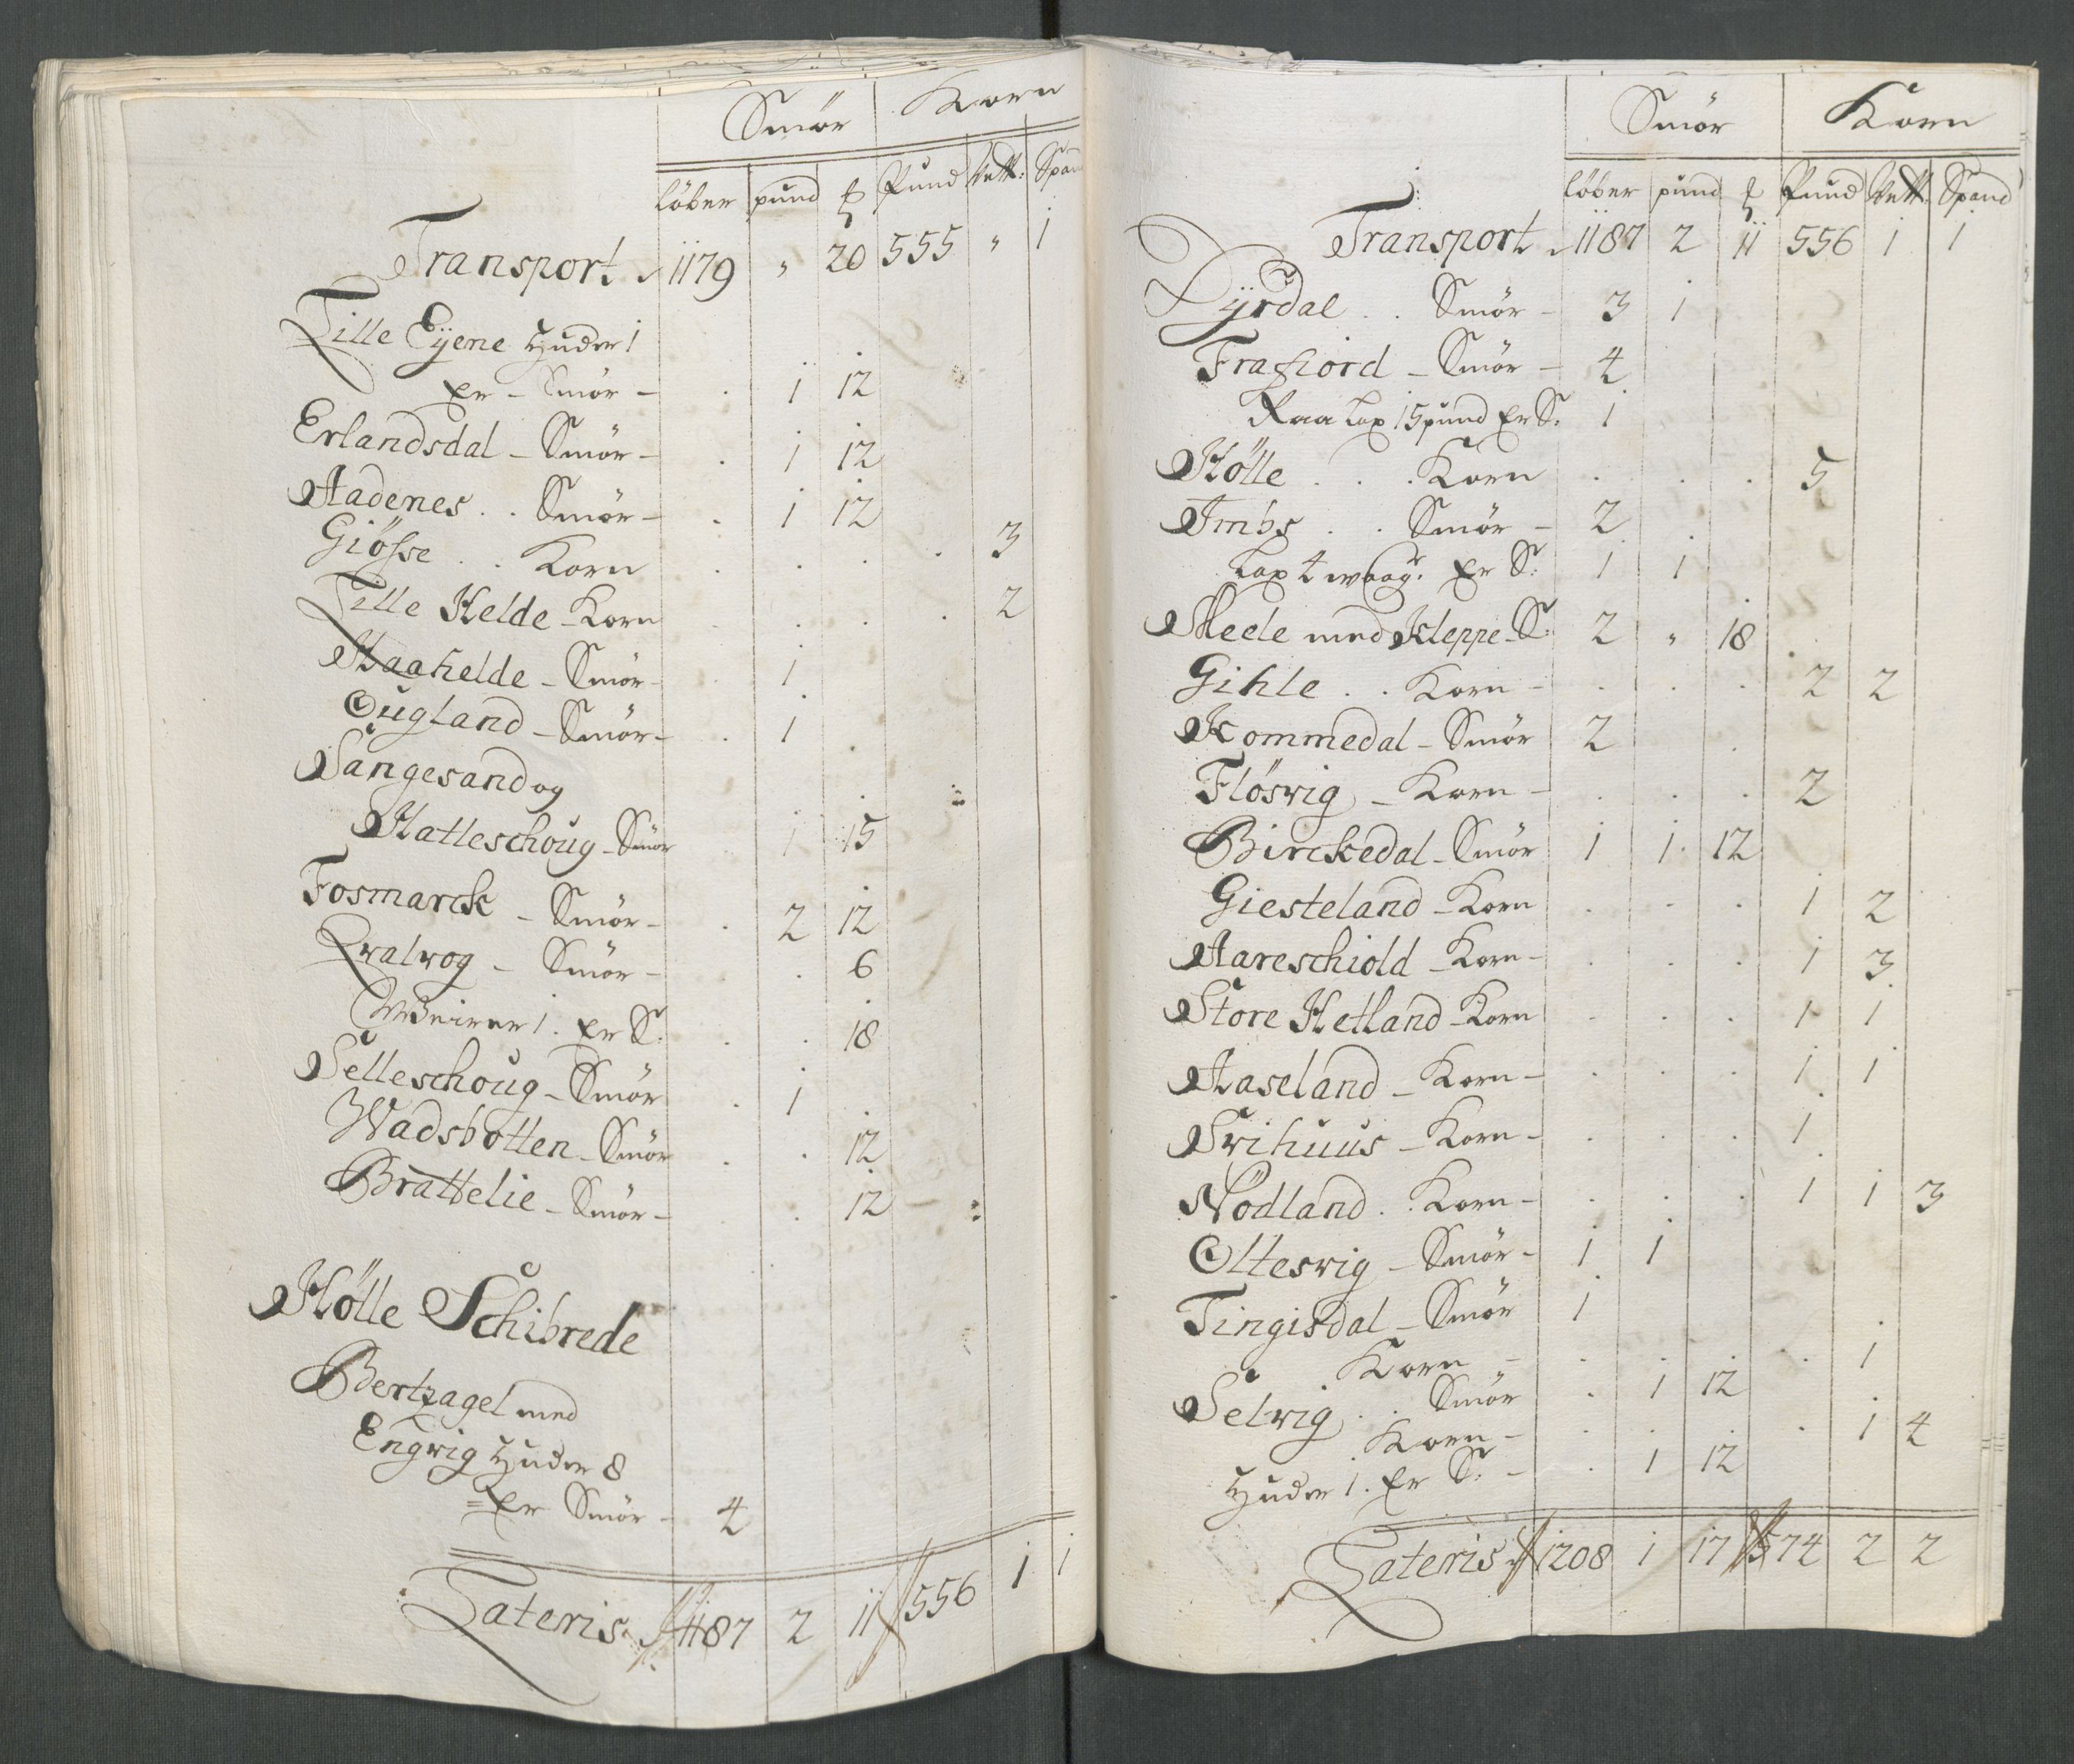 Smör Korn
löber pund ℔ Pund Vett: Span
Transport 1179 " 20 555 " 1
Lille Eÿene Huder 1
er - Smör - . 1 12
Erlandsdal - Smör - . 1 12
Aadenes . . Smör - . 1 12
Giösse . . Korn . . . . 3
Lille Helde - Korn . . . . 2
Haahelde - Smör - . 1
Ougland - Smör - . 1
Sangesand og
Hatleschoug - Smör . 1 15
Fosmarck - Smör - . 2 12
Qvalvog - Smör - . . 6
1. er S: . . 18
Selleschoug - Smör . 1
Wadsbotten - Smör . . 12
Brattelie - Smör - . . 12
Hölle Schibrede
Bertzagel med
Engvig Huder 8
= er Smör - 4
Lateris 1187 2 11 556 1 1
Smör Korn
löber pund ℔ Pund Vett: Spand
Transport 1187 2 11 556 1 1
Dÿrdal . . Smör - 3 1
Frafiord - Smör - 4
Raa Lax 15 pund er S: 1
Hölle . . . Korn . . . 5
Imbs . . Smör - 2
Lax er S: 1 1
Meele med Kleppe - S: 2 " 18
Gihle . . Korn - . . . 2 2
Kommedal - Smör 2
Flösvig - Korn - . . . 2
Birckedal - Smör 1 1 12
Giesteland - Korn . . . 1 2
Aareschiold - Korn - . . . 1 3
Store Hetland - Korn . . . 1 1
Aaseland - Korn - . . . 1 1
Srihuus - Korn - . . . 1
Nödland . . Korn - . . . 1 1 3
Oltesvig - Smör - 1 1
Tingisdal - Smör 1
Korn - . . . . 1
Selvig . . Smör . 1 12
Korn - . . . . 1 4
Huder 1. er S: - . 1 12
Lateris 1208 1 17 574 2 2